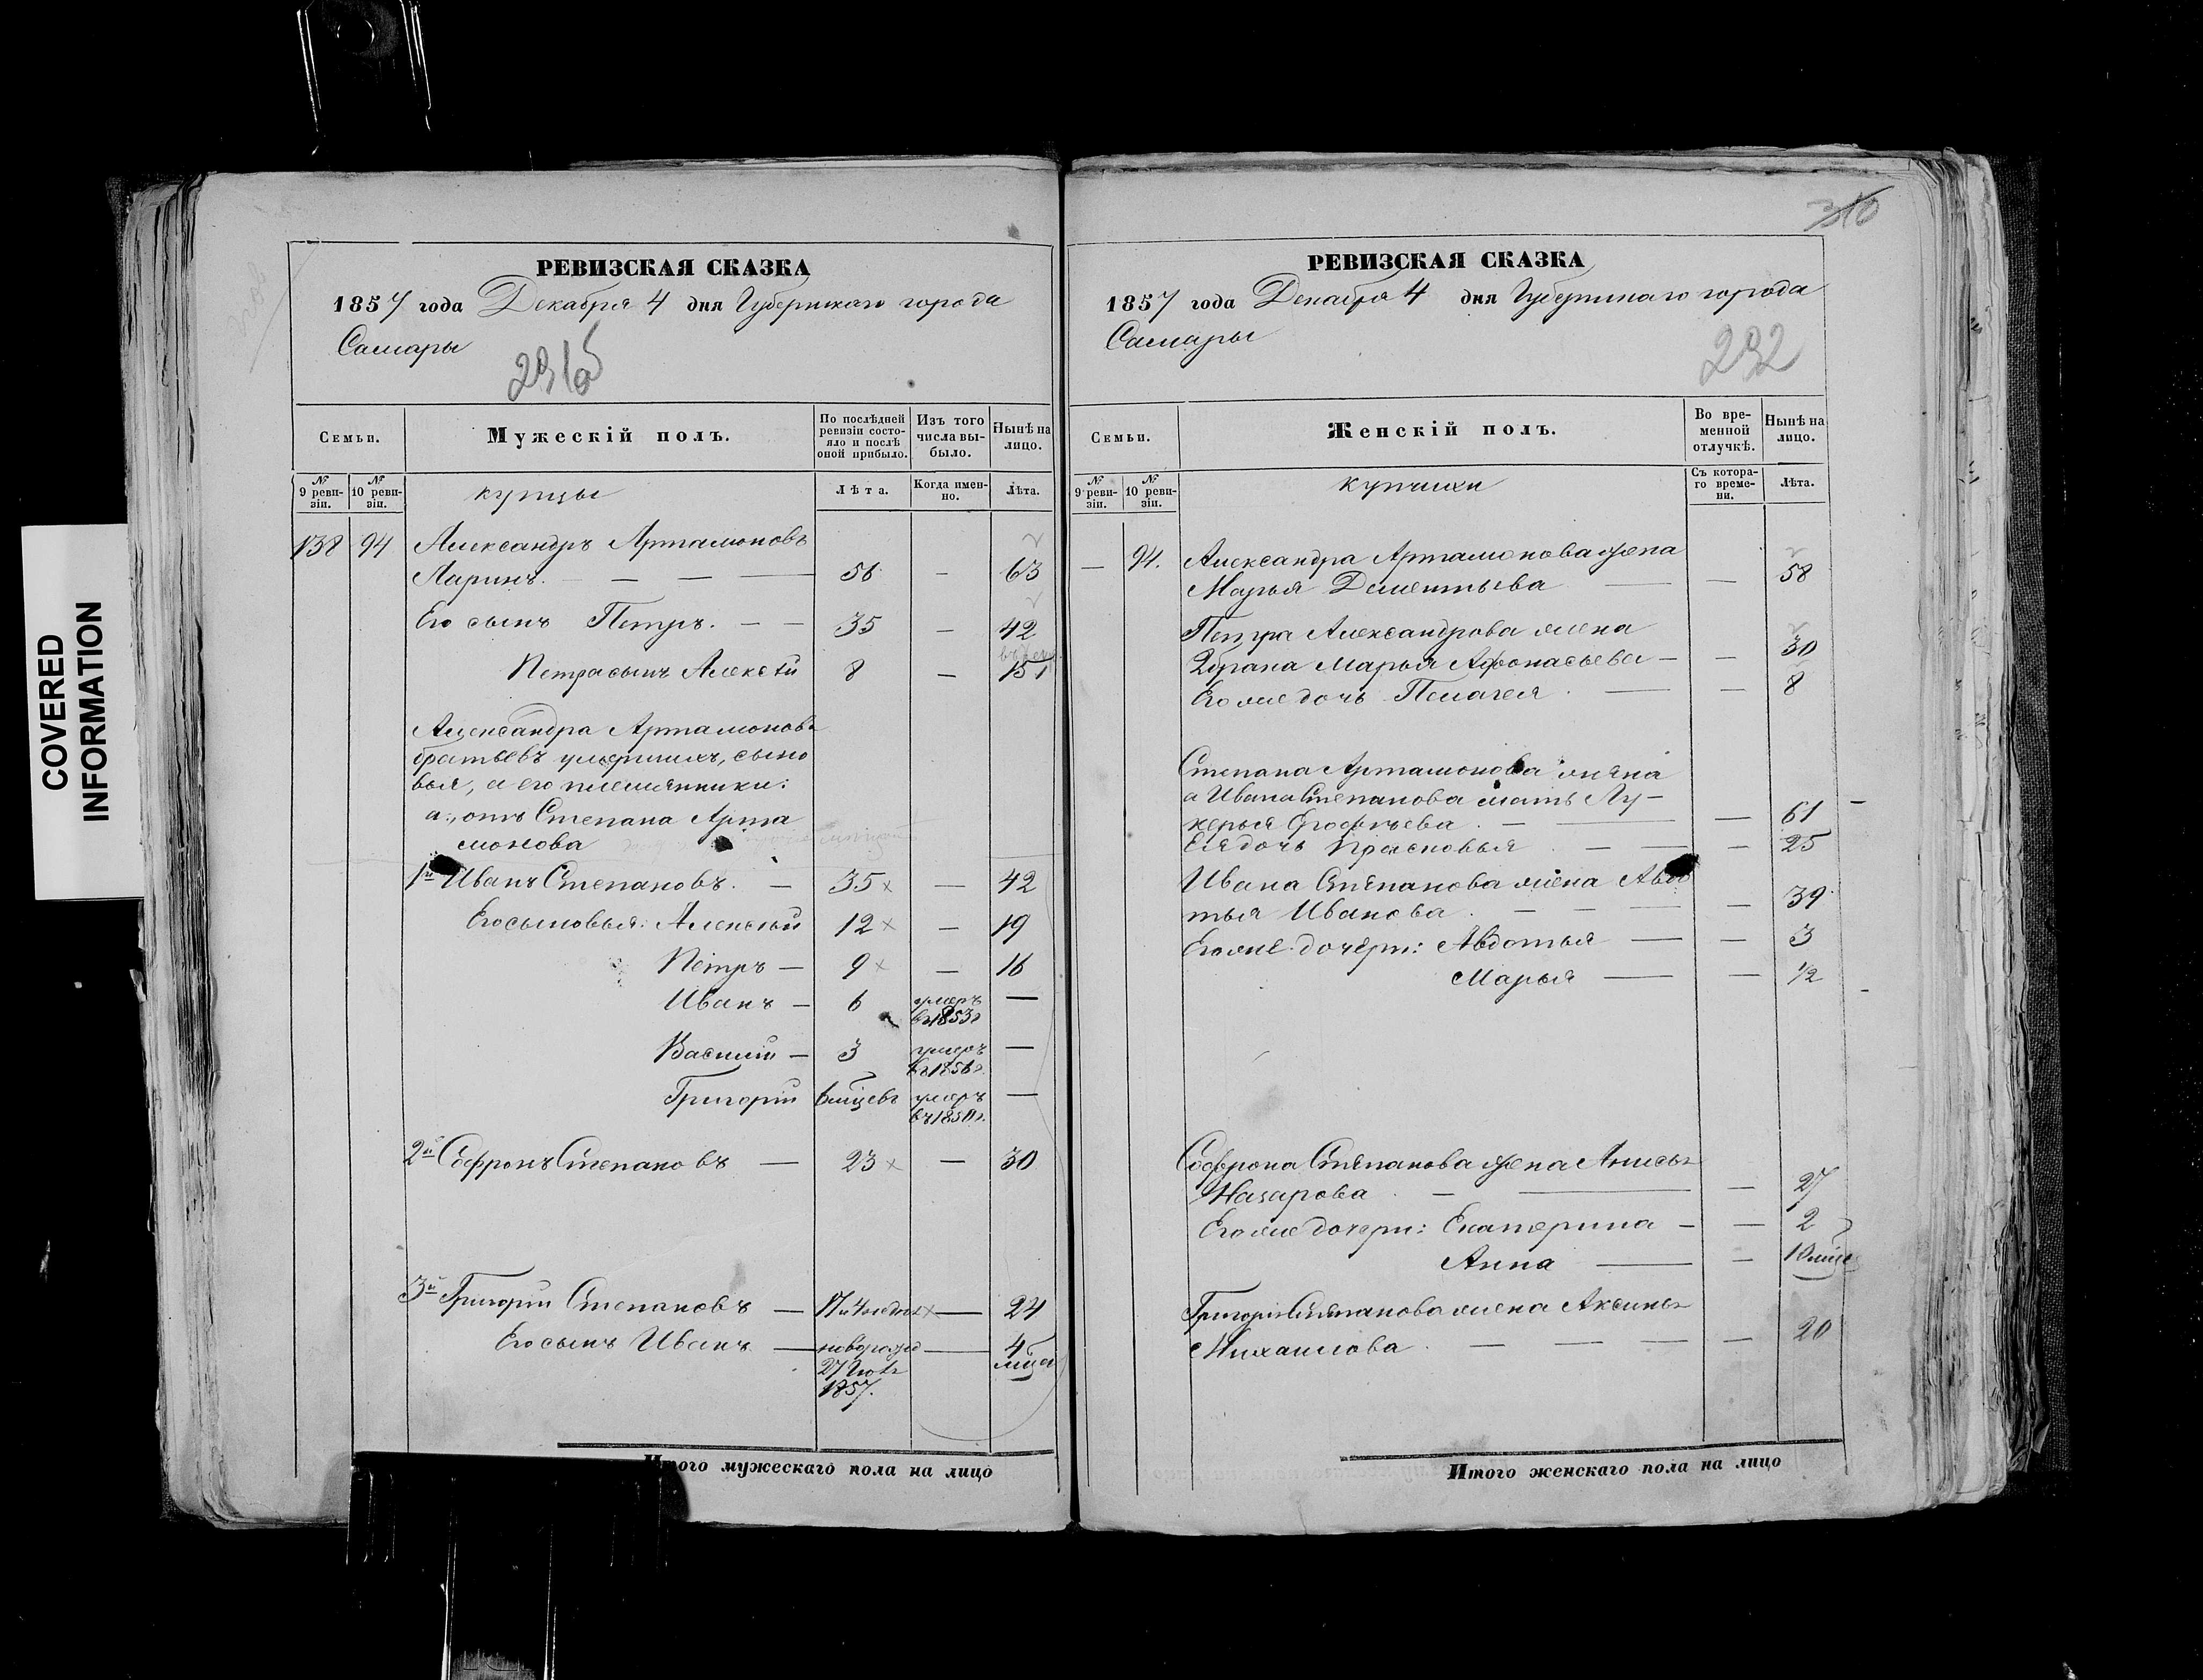 COVERED
INFORMATION
РЕВИЗСКАЯ СКАЗКА
1857 года Декабря 4 дня Губернскаго города
Самары
291об
Семьи.
Мужескій полъ.
По послѣдней ревизіи состояло и послѣ оной прибыло.
Изъ того числа выбыло.
Нынѣ на лицо.
№ 9 ревизіи.
№ 10 ревизіи.
купцы
Лѣта.
Когда именно.
Лѣта.
138 94 Александръ Артамоновъ
Ларинъ. — — — 56 — 63
Его сынъ Петръ. — — 35 — 42
Петра сынъ Алексѣй 8 — 15
Александра Артамонова
братьевъ умершихъ, сыно
вья, а его племянники:
а., отъ Степана Арта
монова
1й Иванъ Степановъ. — 35 — 42
Его сыновья: Алексѣй 12 — 19
Петръ — 9 — 16
Иванъ — 6 умеръ въ 1853г —
Василій — 3 умеръ въ 1856г. —
Григорій 6 мѣцевъ умеръ въ 1850г. —
2й Софронъ Степановъ — 23 — 30
3й Григорій Степановъ — 17 — 24
Его сынъ Иванъ — новорожд — 4 мѣца
27 Іюля
1857.
Итого мужескаго пола на лицо
310
РЕВИЗСКАЯ СКАЗКА
1857 года Декабря 4 дня Губернскаго города
Самары
292
Семьи.
Женскій полъ.
Во временной отлучкѣ.
Нынѣ на лицо.
№ 9 ревизіи.
№ 10 ревизіи.
купчихи
Съ котораго времени.
Лѣта.
— 94. Александра Артамонова жена
Марья Дементьева — — 58
Петра Александрова жена
2 брака Марья Афонасьева — — 30
Его же дочь Пелагея — — 8
Степана Артамонова жена
а Ивана Степанова мать Лу-
керья Ерофѣева — — 61
Ея дочь Прасковья — — — 25
Ивана Степанова жена Авдо
тья Иванова — — — — 39
Его же дочери: Авдотья — — 3
Марья — — 1/2
Софрона Степанова жена Анисья
Назарова — — — 27
Его же дочери: Екатерина — — 2
Анна — — 10 мѣце
Григорія Степанова жена Аксинья
Михаилова — — — — 20
Итого женскаго пола на лицо